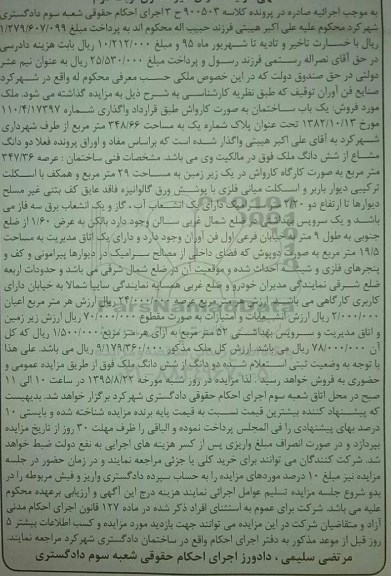 به موجب اجرائیه صادره در پرونده کلاسه ۹۰۰۵۰۳ ح ۳ اجرای احکام حقوقی شعبه سوم دادگستری
شهرکرد محکوم علیه علی اکبر هیبتی فرزند حبیب اله محکوم اند به پرداخت مبلغ ۱/۲۷۹/۶۰۷/۰۹۹
ریال با خسارت تاخیر و تادیه تا شهریور ماه ۹۵ و مبلغ ۱۰/۲۱۲/۰۰۰ ریال بابت هزینه دادرسی
در حق آقای نصراله رستمی فرزند رسول و پرداخت مبلغ ۲۵/۵۳۰/۰۰۰ ریال به عنوان نیم عشر
دولتی در حق صندوق دولت که در این خصوص ملکی حسب معرفی محکوم له واقع در شهرکرد
صنایع فن آوران توقیف که طبق نظریه کارشناسی به شرح ذیل به مزایده گذاشته می شود. ملک
مورد فروش: یک باب ساختمان به صورت کارواش طبق قرارداد واگذاری شماره ۱۱۰/۴/۱۷۳۹۷
مورخ ۱۳۸۲/۱۰/۱۳ تحت عنوان پلاک شماره یک به مساحت ۳۴۸/۶۶ متر مربع از طرف شهرداری
شهرکرد به آقای علی اکبر هیبتی واگذار شده است که براساس مفاد و اوراق پرونده فعلا دو دانگ
مشاع از شش دانگ ملک فوق در مالکیت وی می باشد. مشخصات فنی ساختمان : عرصه ۳۴۷/۳۶
متر مربع به صورت کارگاه کارواش در یک زیر زمین به مساحت ۲۹ متر مربع و همکف با اسکلت
ترکیبی دیوار باربر و اسکلت میانی فلزی با پوشش ورق گالوانیزه فاقد عایق کف بتنی غیر مسلح
دیوارها تا ارتفاع دو ۲/۳۰ ملک دارای یک انشعاب آب ، گاز و یک انشعاب برق سه فاز می
باشد و یک سرویس بهداشتی در ضلع شمال غربی سالن وجود دارد بالکن به عرض ۱/۶۰ از ضلع
جنوبی به طول ۹ متر خیابان فرعی اول فن آوران وجود دارد و دارای یک اتاق مدیریت به مساحت
۱۹/۵ متر مربع به صورت دوپوش که فضای داخلی از مصالح سرامیک در دیوارها پیرامونی و کف و
پنجرهای فلزی و شیشه احداث شده و موقعیت آن در ضلع شمال شرقی می باشد و حدودات اربعه
ضلع شرقی نمایندگی مدیران خودرو و ضلع غربی همسایه نمایندگی سایپا شمالا به خیابان دارای
کاربری کارگاهی می باشد ارزش هر متر مربع عرصه ۲۴/۰۰۰/۰۰۰ ریال ارزش هر متر مربع اعیان
۲/۰۰۰/۰۰۰ ریال ارزش انشعابات و امتیازات به صورت مقطوع ۷۰/۰۰۰/۰۰۰ ریال ارزش زیر زمین
و اتاق مدیریت و سرویس بهداشتی ۵۲ متر مربع به ازای هر متر مربع ۱/۵۰۰/۰۰۰ ریال که کل
آن ۷۸/۰۰۰/۰۰۰ ریال می باشد. ارزش کل ملک مذکور ۹/۱۷۹/۳۶۰/۰۰۰ ریال می باشد. علی هذا
با توجه به وضعیت ثبتی استعلام شده دو دانگ از شش دانگ ملک فوق از طریق مزایده عمومی و
حضوری به فروش خواهد رسید . لذا مزایده در روز شنبه مورخه ۱۳۹۵/۸/۲۲ در ساعت ۱۰ الی ۱۱
صبح در محل اتاق شعبه سوم اجرای احکام حقوقی دادگستری شهرکرد برگزار خواهد شد. بدیهیست
که پیشنهاد کننده بیشترین قیمت نسبت به قیمت پایه برنده مزایده شناخته شده و بایستی ۱۰
درصد بهای پیشنهادی را فی المجلس پرداخت نموده و الباقی را ظرف مهلت ۳۰ روز از تاریخ مزایده
بپردازد و در صورت انصراف مبلغ واریزی پس از کسر هزینه های اجرایی به نفع دولت ضبط خواهد
شد. شرکت کنندگان می توانند برای خرید کلی یا جزئی مراجعه نمایند و در زمان حضور در جلسه
مزایده نیز مبلغ ۱۰ درصد موردهای مزایده را به حساب سپرده دادگستری واریز و فیش مربوطه را در
بدو شروع جلسه مزایده تسلیم عوامل اجرائی نمایند هزینه درج این آگهی و ارزیابی برعهده محکوم
علیه می باشد. شرکت برای عموم به استثنای افراد ذکر شده در ماده ۱۲۷ قانون اجرای احکام مدنی
آزاد و متقاضیان شرکت در این مزایده می توانند جهت بازدید مورد مزایده و کسب اطلاعات بیشتر ۵
روز قبل از موعد مذکور به دفتر اجرای احکام واقع در ساختمان دادگستری شهرکرد مراجعه نمایند.
مرتضی سلیمی ، دادورز اجرای احکام حقوقی شعبه سوم دادگستری